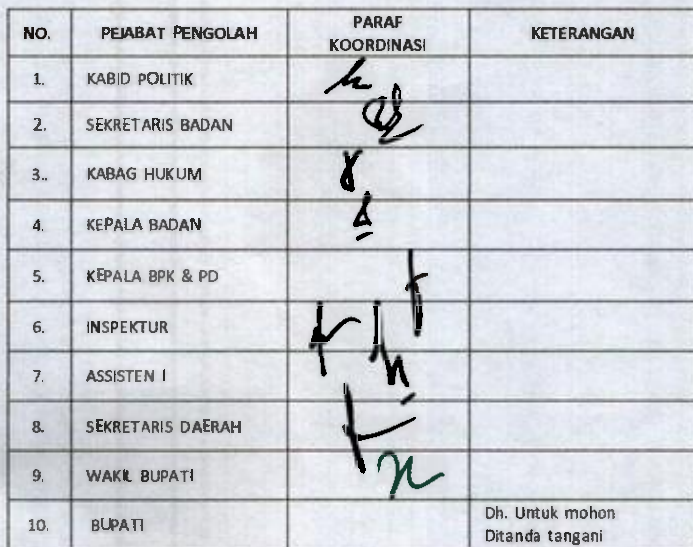 NO. PEJABAT PENGOLAH PARAF KOORDINASI KETERANGAN
1. KABID POLITIK
2. SEKRETARIS BADAN
3.. KABAG HUKUM
4. KEPALA BADAN
5. KEPALA BPK & PD
6. INSPEKTUR
7. ASSISTEN I
8. SEKRETARIS DAERAH
9. WAKIL BUPATI
10. BUPATI Dh. Untuk mohon
Ditanda tangani